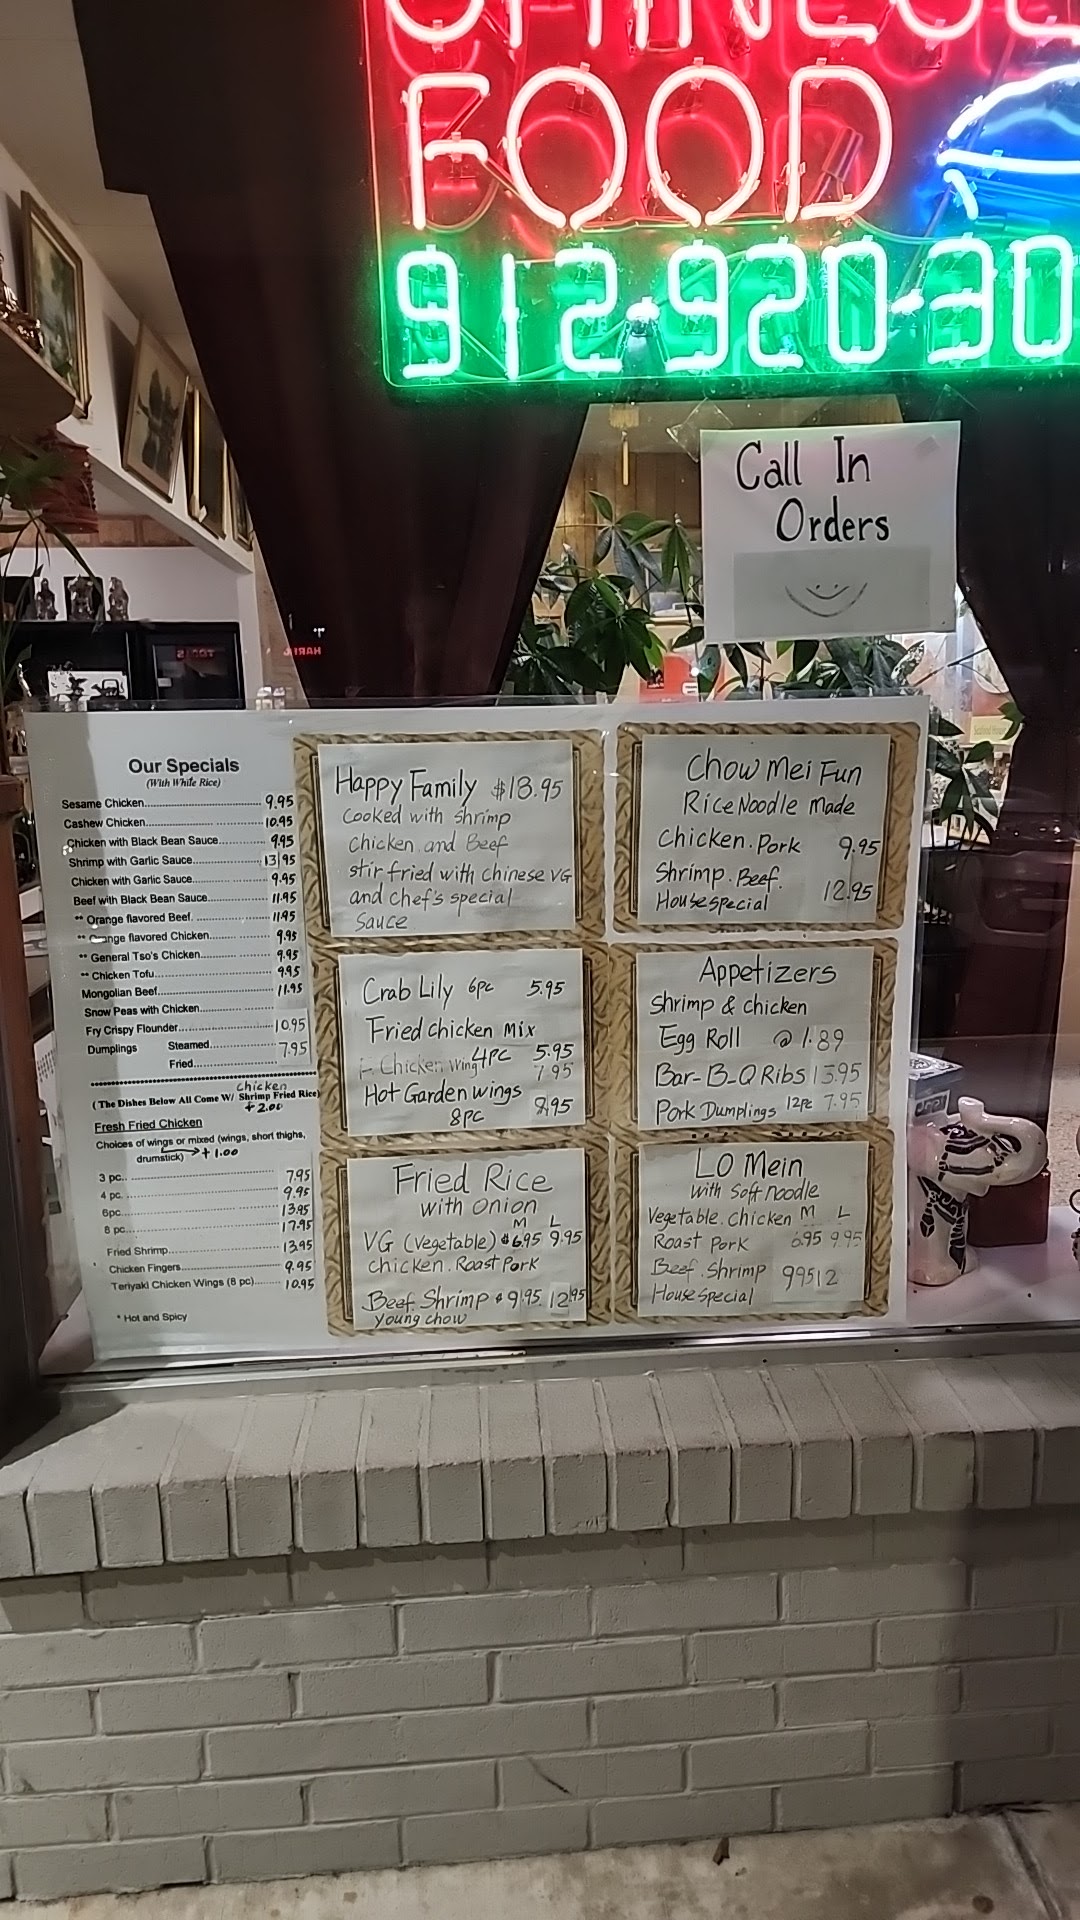 FOOD
912-920-30
Call In
Orders
Our Specials
(With White Rice)
Sesame Chicken 9.95
Cashew Chicken 10.95
Chicken with Black Bean Sauce 9.95
Shrimp with Garlic Sauce 13.95
Chicken with Garlic Sauce 9.95
Beef with Black Bean Sauce 11.95
** Orange flavored Beef 11.95
** Orange flavored Chicken 9.95
** General Tso's Chicken 9.95
** Chicken Tofu 9.95
Mongolian Beef 11.95
Snow Peas with Chicken
Fry Crispy Flounder 10.95
Dumplings Steamed 7.95
Fried
chicken
(The Dishes Below All Come W/ Shrimp Fried Rice)
+ 2.00
Fresh Fried Chicken
Choices of wings or mixed (wings, short thighs,
drumstick) + 1.00
3 pc. 7.95
4 pc. 9.95
6pc. 13.95
8 pc. 17.95
Fried Shrimp 13.95
Chicken Fingers 9.95
Teriyaki Chicken Wings (8 pc) 10.95
* Hot and Spicy
Happy Family $13.95
Cooked with shrimp
Chicken and Beef
stir fried with Chinese VG
and chef's special
Sauce
Chow Mei Fun
Rice Noodle Made
Chicken. Pork 9.95
Shrimp. Beef.
House special 12.95
Crab Lily 6pc 5.95
Fried chicken Mix
4pc 5.95
F. Chicken Wing 7.95
Hot Garden wings
8pc 9.95
Appetizers
Shrimp & chicken
Egg Roll @ 1.89
Bar-B-Q Ribs 13.95
Pork Dumplings 12pc 7.95
Fried Rice
with onion
M L
VG (vegetable) $6.95 9.95
chicken. Roast Pork
Beef. Shrimp $9.95 12.95
young chow
LO Mein
with Soft noodle
Vegetable. Chicken M L
Roast Pork 6.95 9.95
Beef. Shrimp 995 12
House special